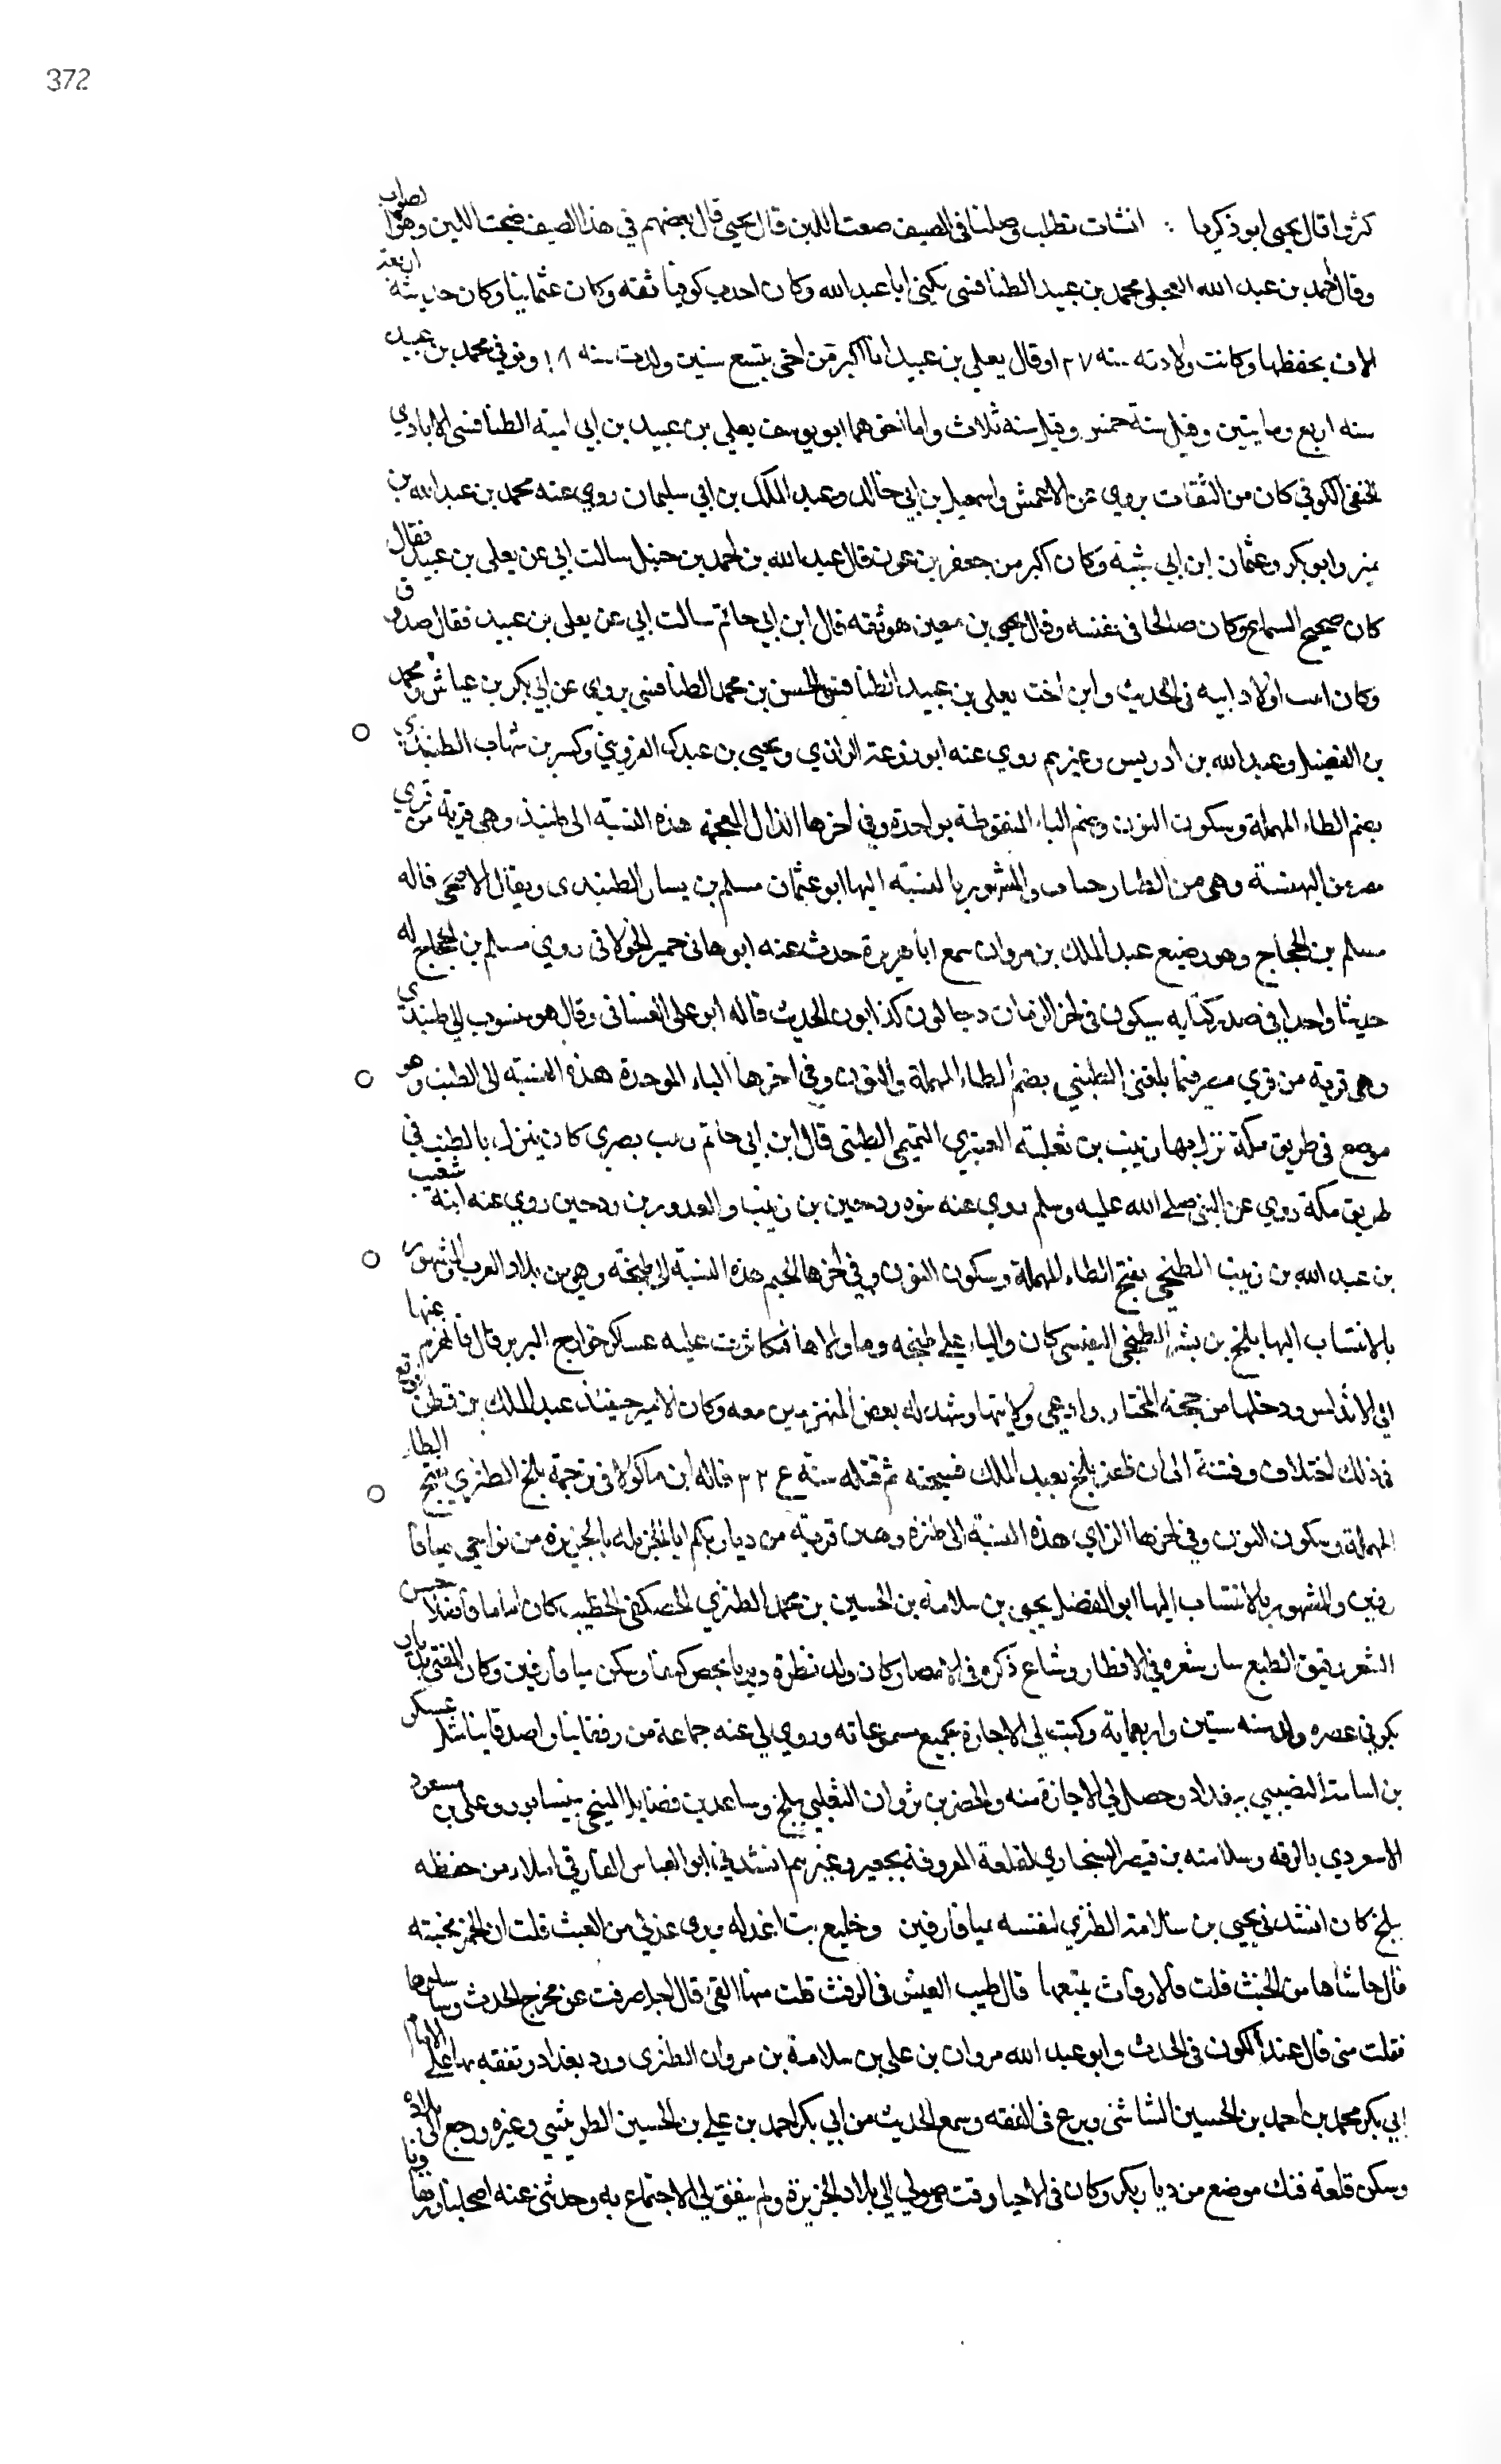 372
كثروا قال يحيى ابو ذكريا : انشات تطلب وصلنا في الصيف ضيعت اللبن قال يحيى قال بعضهم في هذا الصيف ضيحت اللبن وهو الصواب
وقال احمد بن عبد الله العجلي محمد بن عبيد الطنافسي يكنى ابا عبد الله وكان احدب كوفيا ثقه وكان عثمانيا وكان حديثه اربعة
الاف يحفظها وكانت ولادته سنه ١٢٧ وقال يعلى بن عبيد انا اكبر من اخي بتسع سنين ولدت سنه ١١٨ وتوفي محمد بن عبيد
سنه اربع ومايتين وقيل سنة خمس وقيل سنه ثلاث واما اخوهما ابو يوسف يعلى بن عبيد بن ابي امية الطنافسي الايادي
الحنفي الكوفي كان من الثقات يروي عن الاعمش واسمعيل بن ابي خالد وعبد الملك بن ابي سليمان روي عنه محمد بن عبد الله بن
نمير وابو بكر وعثمان ابن ابي شيبه وكان اكبر من جعفر بن عون قال عبد الله بن احمد بن حنبل سالت ابي عن يعلى بن عبيد فقال
كان صحيح السماع وكان صالحا في نفسه وقال يحيى بن معين هو ثقه قال ابن ابي حاتم سالت ابي عن يعلى بن عبيد فقال صدوق
وكان اثبت اولاد ابيه في الحديث وابن اخت يعلى بن عبيد الطنافسي الحسن بن محمد الطنافسي يروي عن ابي بكر بن عياش ومحمد
بن الفضيل وعبد الله بن ادريس وغيرهم روي عنه ابو زرعة الرازي ويحيى بن عبدك القزويني وكسير بن شهاب الطنبذي
بضم الطاء المهملة وسكون النون وبضم الباء المنقوطة بواحدة وفي اخرها الذال المعجمة هذه النسبة الى طنبذ وهي قرية من قري
مصر من البهنسة وهي من والمشهور بالنسبة اليها ابو عثمان مسلم بن يسار الطنبذي ويقال الاصبحي قاله
مسلم بن الحجاج وهو رضيع عبد الملك بن مروان سمع ابا هريرة حدث عنه ابو هاني حميد الخولاني روي مسلم بن الحجاج له
حديثا واحدا في صدر كتابه سيكون في اخر الزمان دجالون كذابون الحديث قاله ابو علي الغساني وقال هو منسوب الى طنبذي
وهي قرية من قري مصر فيما بلغني الطنبي بضم الطاء المهملة والنون وفي اخرها الباء الموحدة هذه النسبة الى الطنب وهو
موضع في طريق مكة نزل بها زبيب بن ثعلبة العنبري التميمي الطنبي قال ابن ابي حاتم زبيب بصري كان ينزل بالطنب في
طريق مكة روي عن النبي صلى الله عليه وسلم روي عنه بنوه ردحين بن زبيب والعدور بن ردحين روي عنه ابنه شعيب
بن عبد الله بن زبيب الطنجي بفتح الطاء المهملة وسكون النون وفي اخرها الجيم هذه النسبة الى طنجة وهي من بلاد العرب المشهور
بالانتساب اليها بلخ بن بشر الطنجي القيسي كان والياء على طنجه وما والاها فتكاثرت عليه عساكر خوارج البربر قال فانهزم عنها
الى الاندلس ودخلها من جهة المختار وادعي ولايتها وشهد له بعض المنهزمين معه وكان الامير حينئذ عبد الملك بن قطن فوقع
في ذلك اختلاف وفتنة الى ان ظفر بلخ بعبد الملك فسجنه ثم قتله سنة قاله ابن ماكولا في ترجمة بلخ الطنزي بفتح الطاء
المهملة وسكون النون وفي اخرها الزاي هذه النسبة الى طنزه وهي قرية من ديار بكر بالجزيره من نواحي ميافا
رقين والمشهور بالانتساب اليها ابو الفضل يحيى بن سلامة بن الحسين بن محمد الطنزي الحصكفي الخطيب كان اماما فاضلا حسن
الشعر رقيق الطبع سار شعره في الاقطار وشاع ذكره في الامصار وكان ولد بطنزه وربا بحصن كيفا وسكن ميافارقين وكان المفتي بديار
بكر في عصره ولد سنه ستين واربعماية وكتب لي الاجازة بجميع مسموعاته وروي لي عنه جماعة من رفقاينا واصدقاينا مثل عسكر
بن اسامة النصيبي ببغداد وحصل لي الاجازة منه والخضر بن ثروان الثعلبي ببلخ وساعد بن فضايل المنبجي بنيسابور وعلي بن مسعود
الاسعردي بالرقه وسلامته بن قيصر السنجاري بقلعة المعروفة بجعبر وغيرهم انشدني ابو العباس الفارقي املاء من حفظه
ببلخ كان انشدني يحيى بن سلامة الطنزي لنفسه بميافارقين وخليع بت اعذله ويري عذلي من العبث قلت ان الخمر مخبثة
قال حاشاها من الخبث قلت فالارفاث يتبعها قال طيب العيش في الرفث قلت منها القئ قال اجل صرفت عن مخرج الحدث وساسلوها
فقلت متى قال عند الكون في الحدث وابو عبد الله مروان بن علي بن سلامة بن مروان الطنزي ورد بغداد وتفقه بها على الامام
ابي بكر محمد بن احمد بن الحسين الشاشي وبرع في الفقه وسمع الحديث من ابي بكر احمد بن علي بن الحسين الطريثيثي وغيره ورجع الى بلاده
وسكن قلعة فنك موضع من ديار بكر وكان في الاحياء وقت وصولي الي بلاد الجزيرة ولم يتفق لي الاجتماع به وحدثني عنه اصحابنا